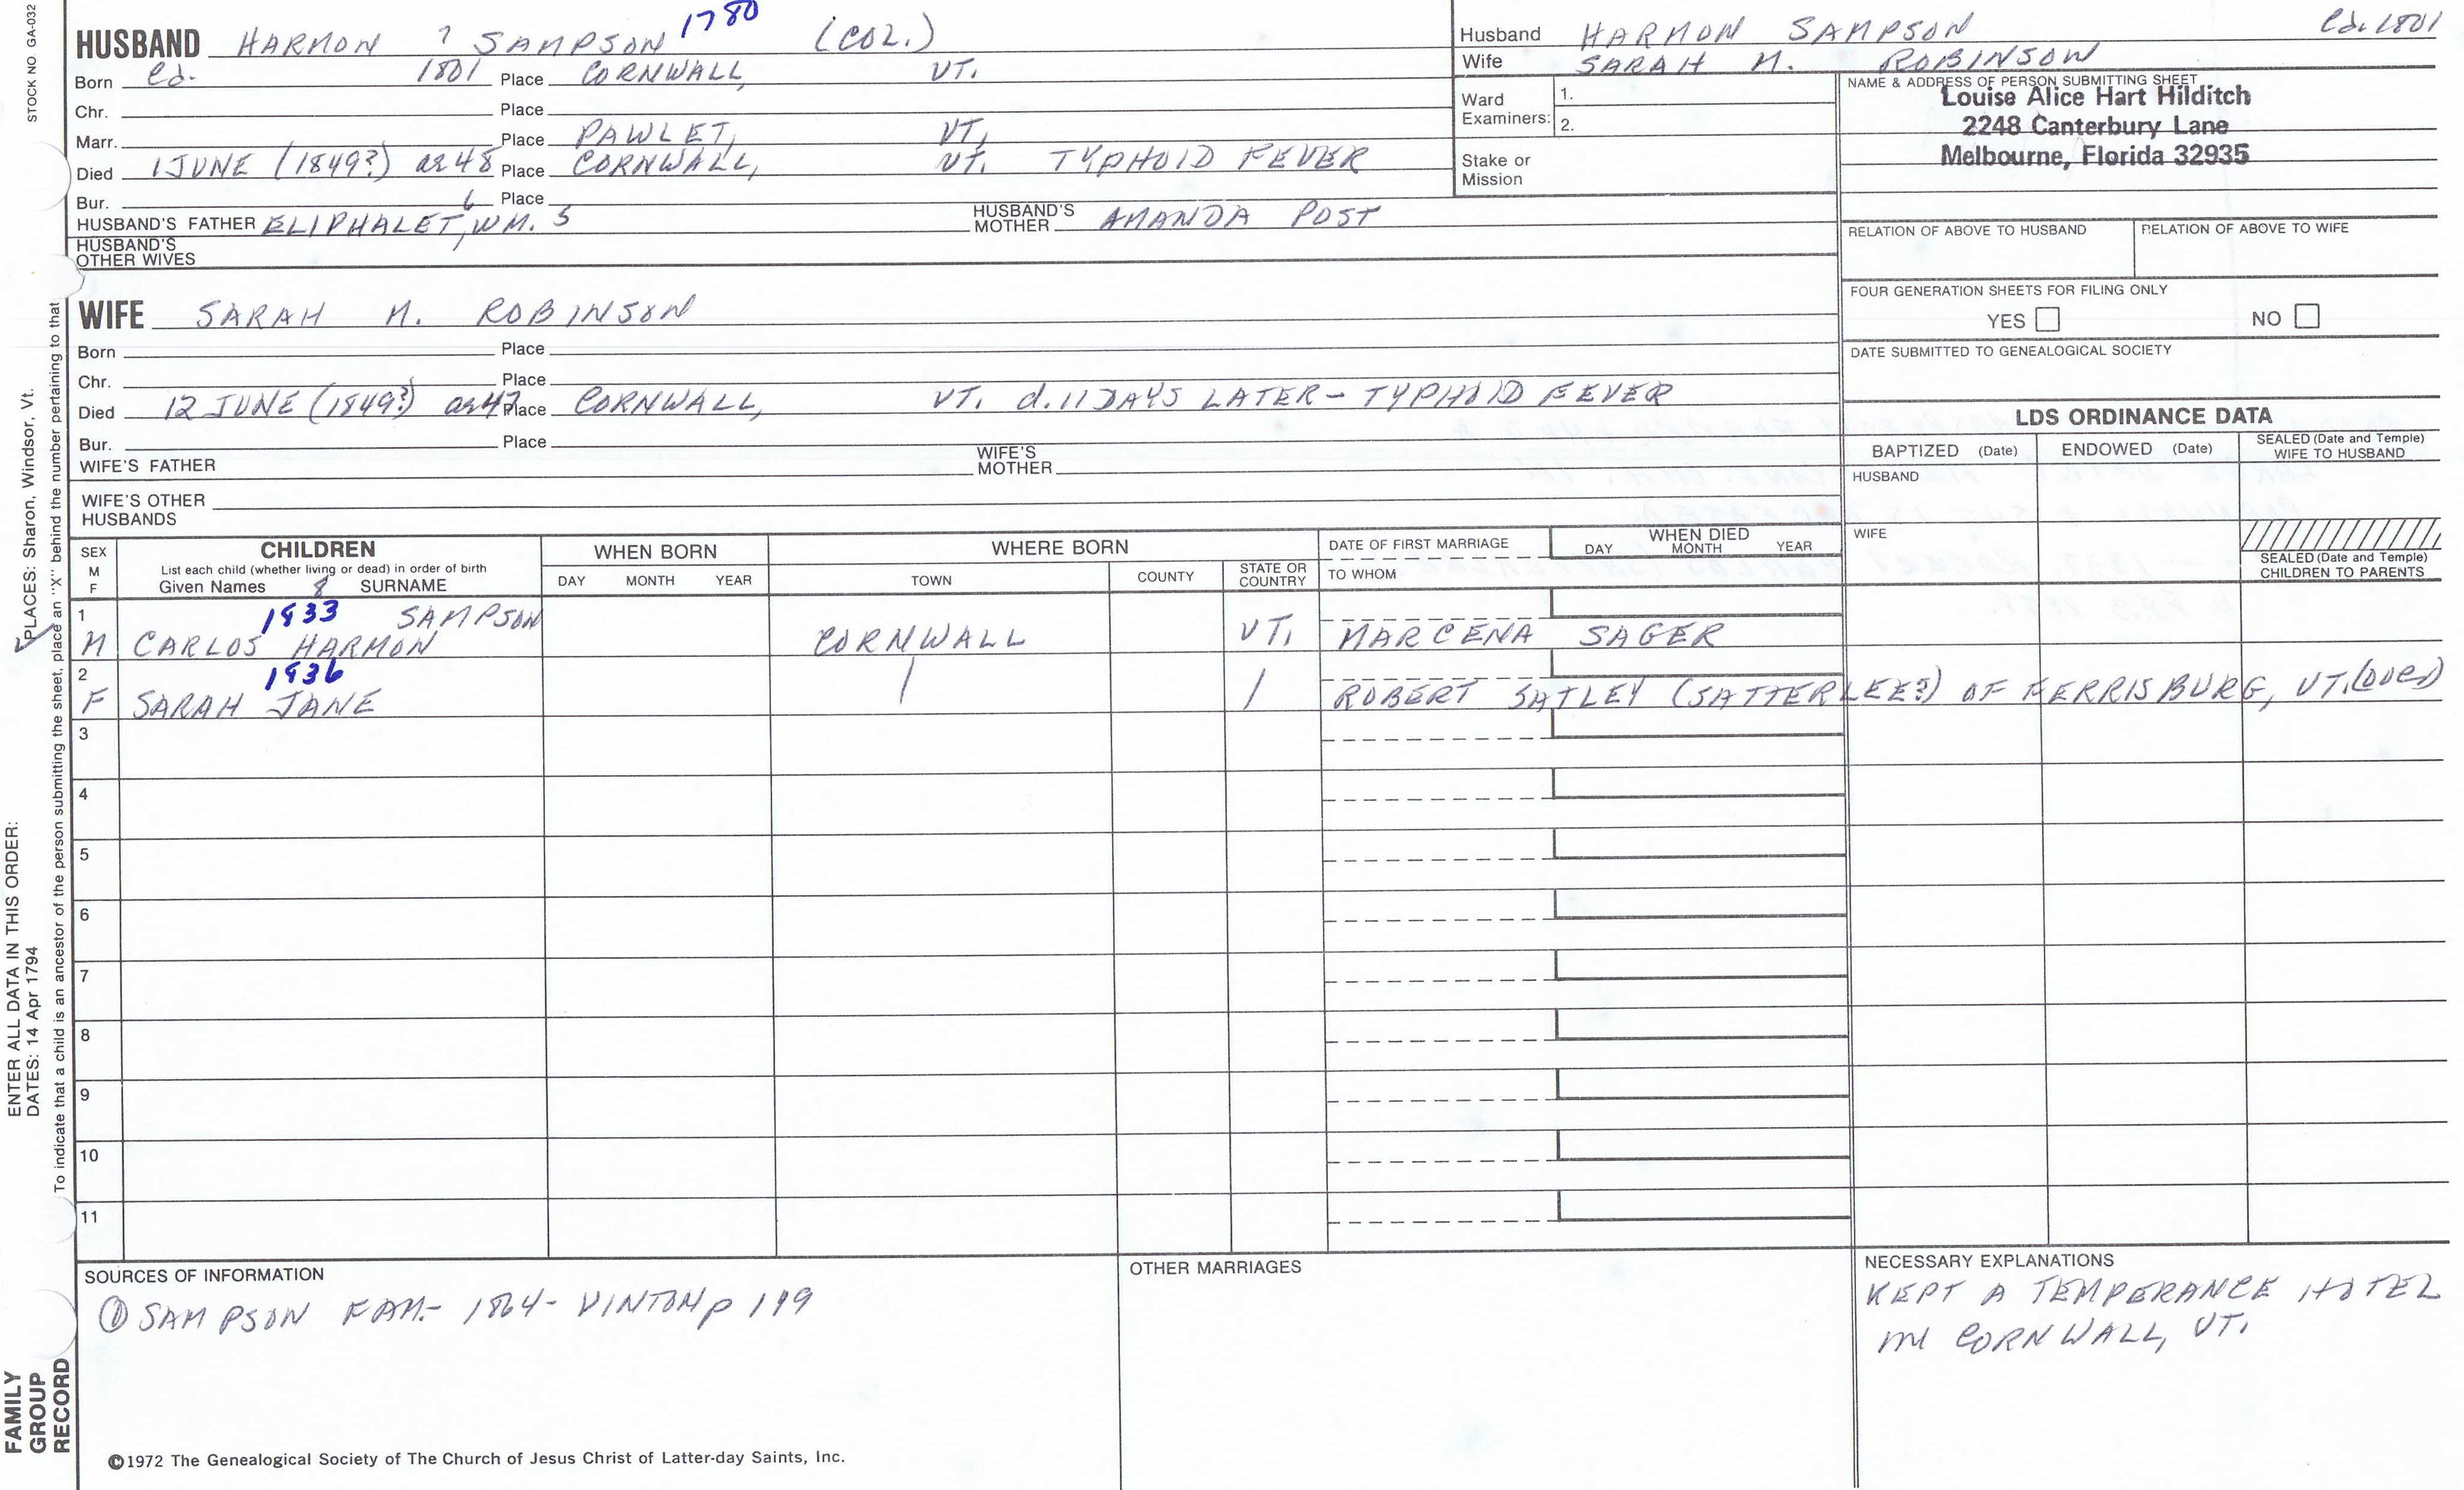 STOCK NO GA-032
HUSBAND HARMON ? SAMPSON 1780 (COL.)
Born Ca. 1801 Place CORNWALL, VT.
Chr. Place
Marr. Place PAWLET, VT.
Died 1 JUNE (1849?) ae 48 Place CORNWALL, VT. TYPHOID FEVER
Bur. Place
HUSBAND'S FATHER ELIPHALET,6 WM. 5 HUSBAND'S MOTHER AMANDA POST
HUSBAND'S OTHER WIVES
WIFE SARAH M. ROBINSON
Born Place
Chr. Place
Died 12 JUNE (1849?) ae 47 Place CORNWALL, VT. d. 11 DAYS LATER - TYPHOID FEVER
Bur. Place
WIFE'S FATHER WIFE'S MOTHER
WIFE'S OTHER HUSBANDS
Husband HARMON SAMPSON Ca. 1801
Wife SARAH M. ROBINSON
Ward Examiners: 1.
2.
Stake or Mission
NAME & ADDRESS OF PERSON SUBMITTING SHEET
Louise Alice Hart Hilditch
2248 Canterbury Lane
Melbourne, Florida 32935
RELATION OF ABOVE TO HUSBAND RELATION OF ABOVE TO WIFE
FOUR GENERATION SHEETS FOR FILING ONLY
YES NO
DATE SUBMITTED TO GENEALOGICAL SOCIETY
LDS ORDINANCE DATA
BAPTIZED (Date) ENDOWED (Date) SEALED (Date and Temple) WIFE TO HUSBAND
HUSBAND
WIFE
SEALED (Date and Temple) CHILDREN TO PARENTS
SEX M F
CHILDREN
List each child (whether living or dead) in order of birth
Given Names SURNAME
WHEN BORN
DAY MONTH YEAR
WHERE BORN
TOWN COUNTY STATE OR COUNTRY
DATE OF FIRST MARRIAGE
TO WHOM
WHEN DIED
DAY MONTH YEAR
1 1933 SAMPSON
M CARLOS HARMON CORNWALL VT. MARCENA SAGER
2 1936
F SARAH JANE ROBERT SATLEY (SATTERLEE?) OF FERRISBURG, VT. (OVER)
3
4
5
6
7
8
9
10
11
SOURCES OF INFORMATION
① SAMPSON FAM.- 1864- VINTON p 119
OTHER MARRIAGES
NECESSARY EXPLANATIONS
KEPT A TEMPERANCE HOTEL
in CORNWALL, VT.
©1972 The Genealogical Society of The Church of Jesus Christ of Latter-day Saints, Inc.
ENTER ALL DATA IN THIS ORDER:
DATES: 14 Apr 1794
PLACES: Sharon, Windsor, Vt.
To indicate that a child is an ancestor of the person submitting the sheet, place an "X" behind the number pertaining to that
FAMILY
GROUP
RECORD